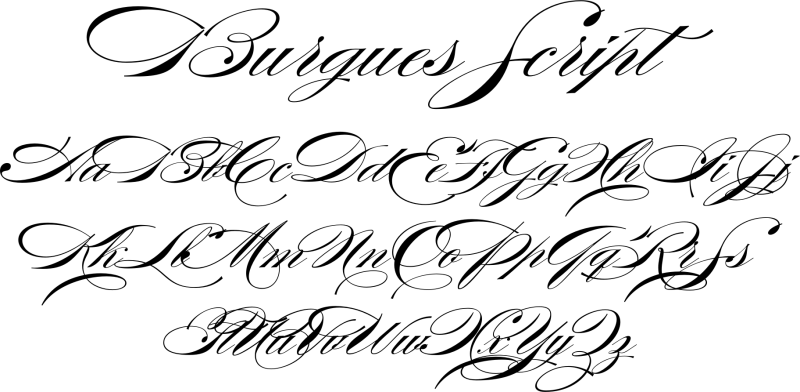 Burgues Script
AaBbCcDdEeFfGgHhIiJj
KkLlMmNnOoPpQqRrSs
TtUuVvWwXxYyZz